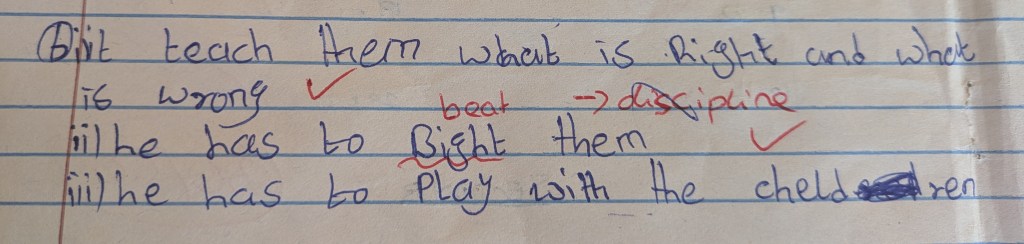 b)i)it teach them what is Right and what
is wrong
beat → discipline
ii)he has to Bight them
iii)he has to Play with the cheldren